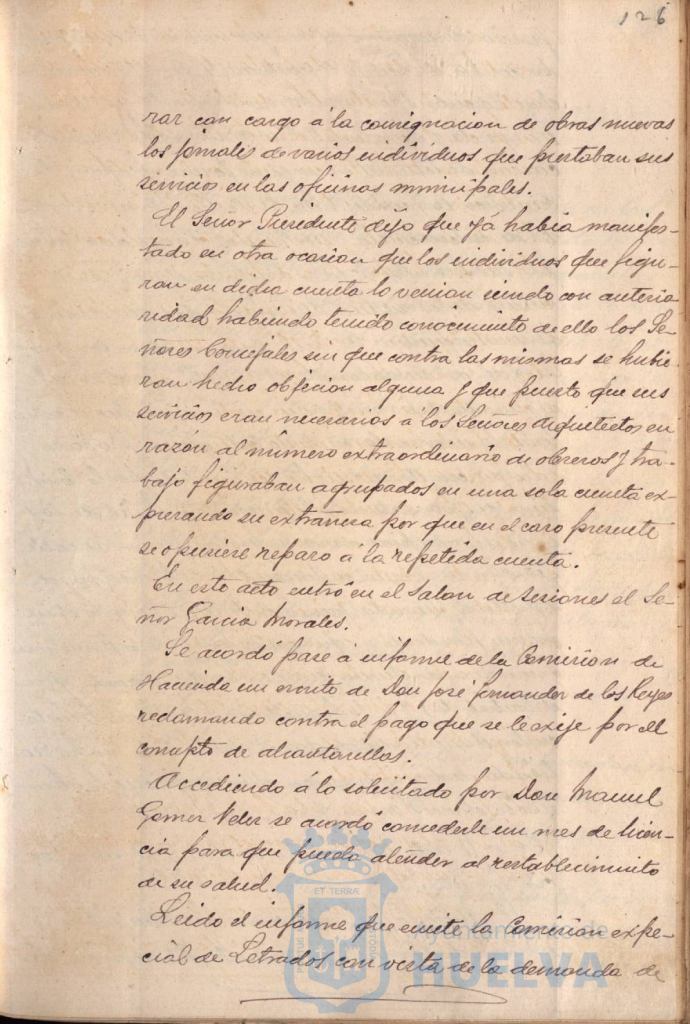 126
rar con cargo á la consignacion de obras nuevas
los jornales de varios individuos que prestaban sus
servicios en las oficinas municipales.
El Señor Presidente dijo que yá habia manifes-
tado en otra ocasion que los individuos que figu-
ran en dicha cuenta lo venian siendo con anterio
ridad habiendo tenido conocimiento de ello los Se-
ñores Concejales sin que contra las mismas se hubie-
ran hecho objecion alguna y que puesto que sus
servicios eran necesarios á los Señores Arquitectos en
razon al número extraordinario de obreros y tra-
bajo figuraban agrupados en una sola cuenta ex-
presando su extrañeza por que en el caso presente
se opusiese reparo á la repetida cuenta.
En este acto entró en el Salon de Sesiones el Se-
ñor Garcia Morales.
Se acordó pase á informe de la Comision de
Hacienda un escrito de Don José Fernandez de los Reyes
reclamando contra el pago que se le exije por el
concepto de alcantarillas.
Accediendo á lo solicitado por Don Manuel
Gomez Velez se acordó concederle un mes de licen-
cia para que pueda atender al restablecimiento
de su salud.
Leido el informe que emite la Comision espe-
cial de Letrados con vista de la demanda de
ET TERRÆ
Ayuntamiento de
HUELVA